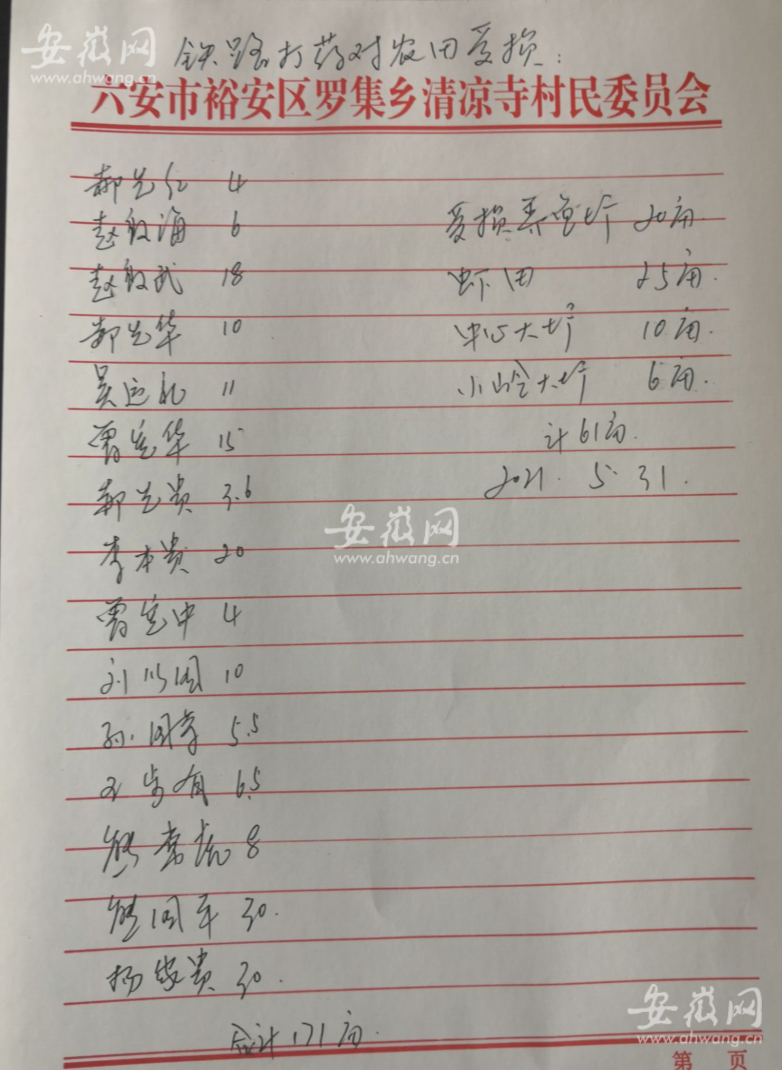 安徽网
www.ahwang.cn
铁路打药对农田受损：
六安市裕安区罗集乡清凉寺村民委员会
郝先红 4
赵敬海 6
赵敬武 18
郝先华 10
吴运礼 11
曹先华 15
郝先贵 3.6
李本贵 20
曹先中 4
刘 国 10
孙国 5.5
王步有 6.5
熊 8
熊国平 30.
杨家贵 30.
合计171亩.
受损养鱼圩 20亩.
虾田 25亩.
中心大圩 10亩.
小岭大圩 6亩.
计61亩.
2021. 5. 31.
安徽网
www.ahwang.cn
安徽网
www.ahwang.cn
第 页